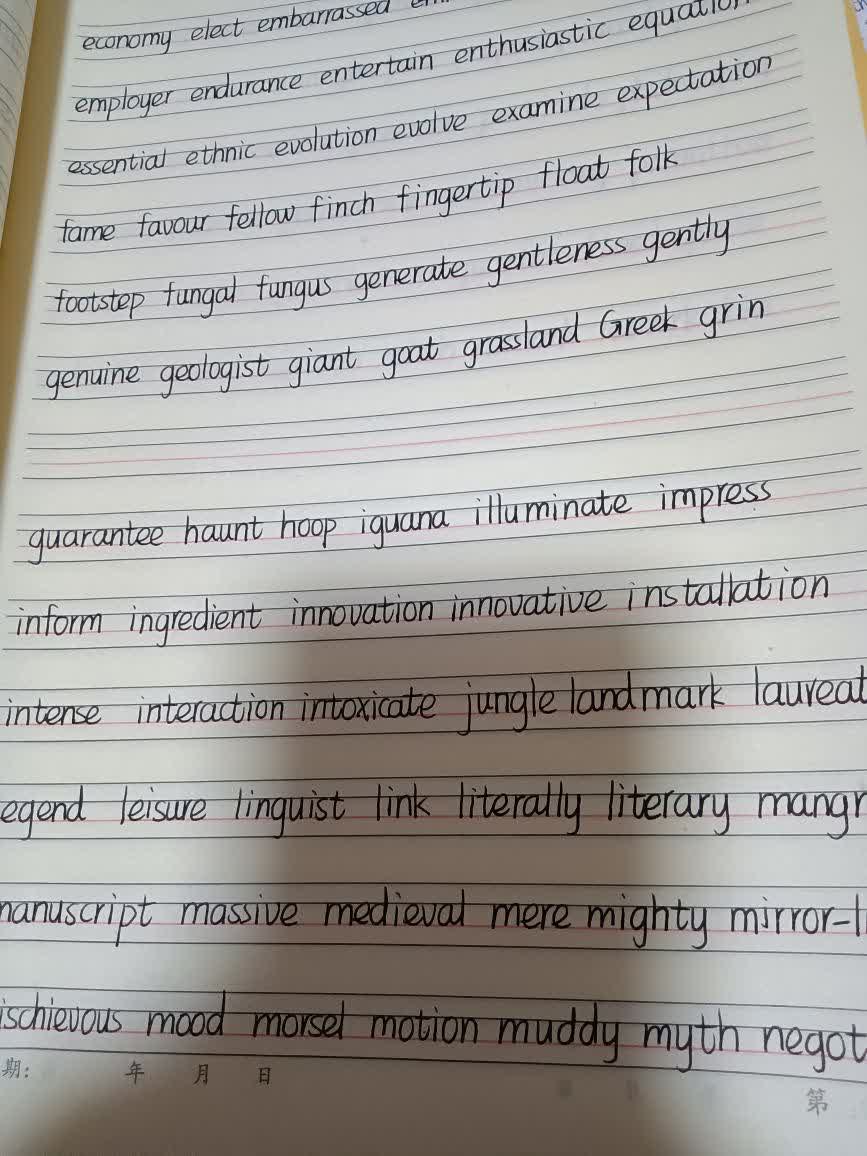 economy elect embarrassed
employer endurance entertain enthusiastic equation
essential ethnic evolution evolve examine expectation
fame favour fellow finch fingertip float folk
footstep fungal fungus generate gentleness gently
genuine geologist giant goat grassland Greek grin
guarantee haunt hoop iguana illuminate impress
inform ingredient innovation innovative installation
intense interaction intoxicate jungle landmark laureat
egend leisure linguist link literally literary mangr
manuscript massive medieval mere mighty mirror-li
ischievous mood morsel motion muddy myth negot
期: 年 月 日
第